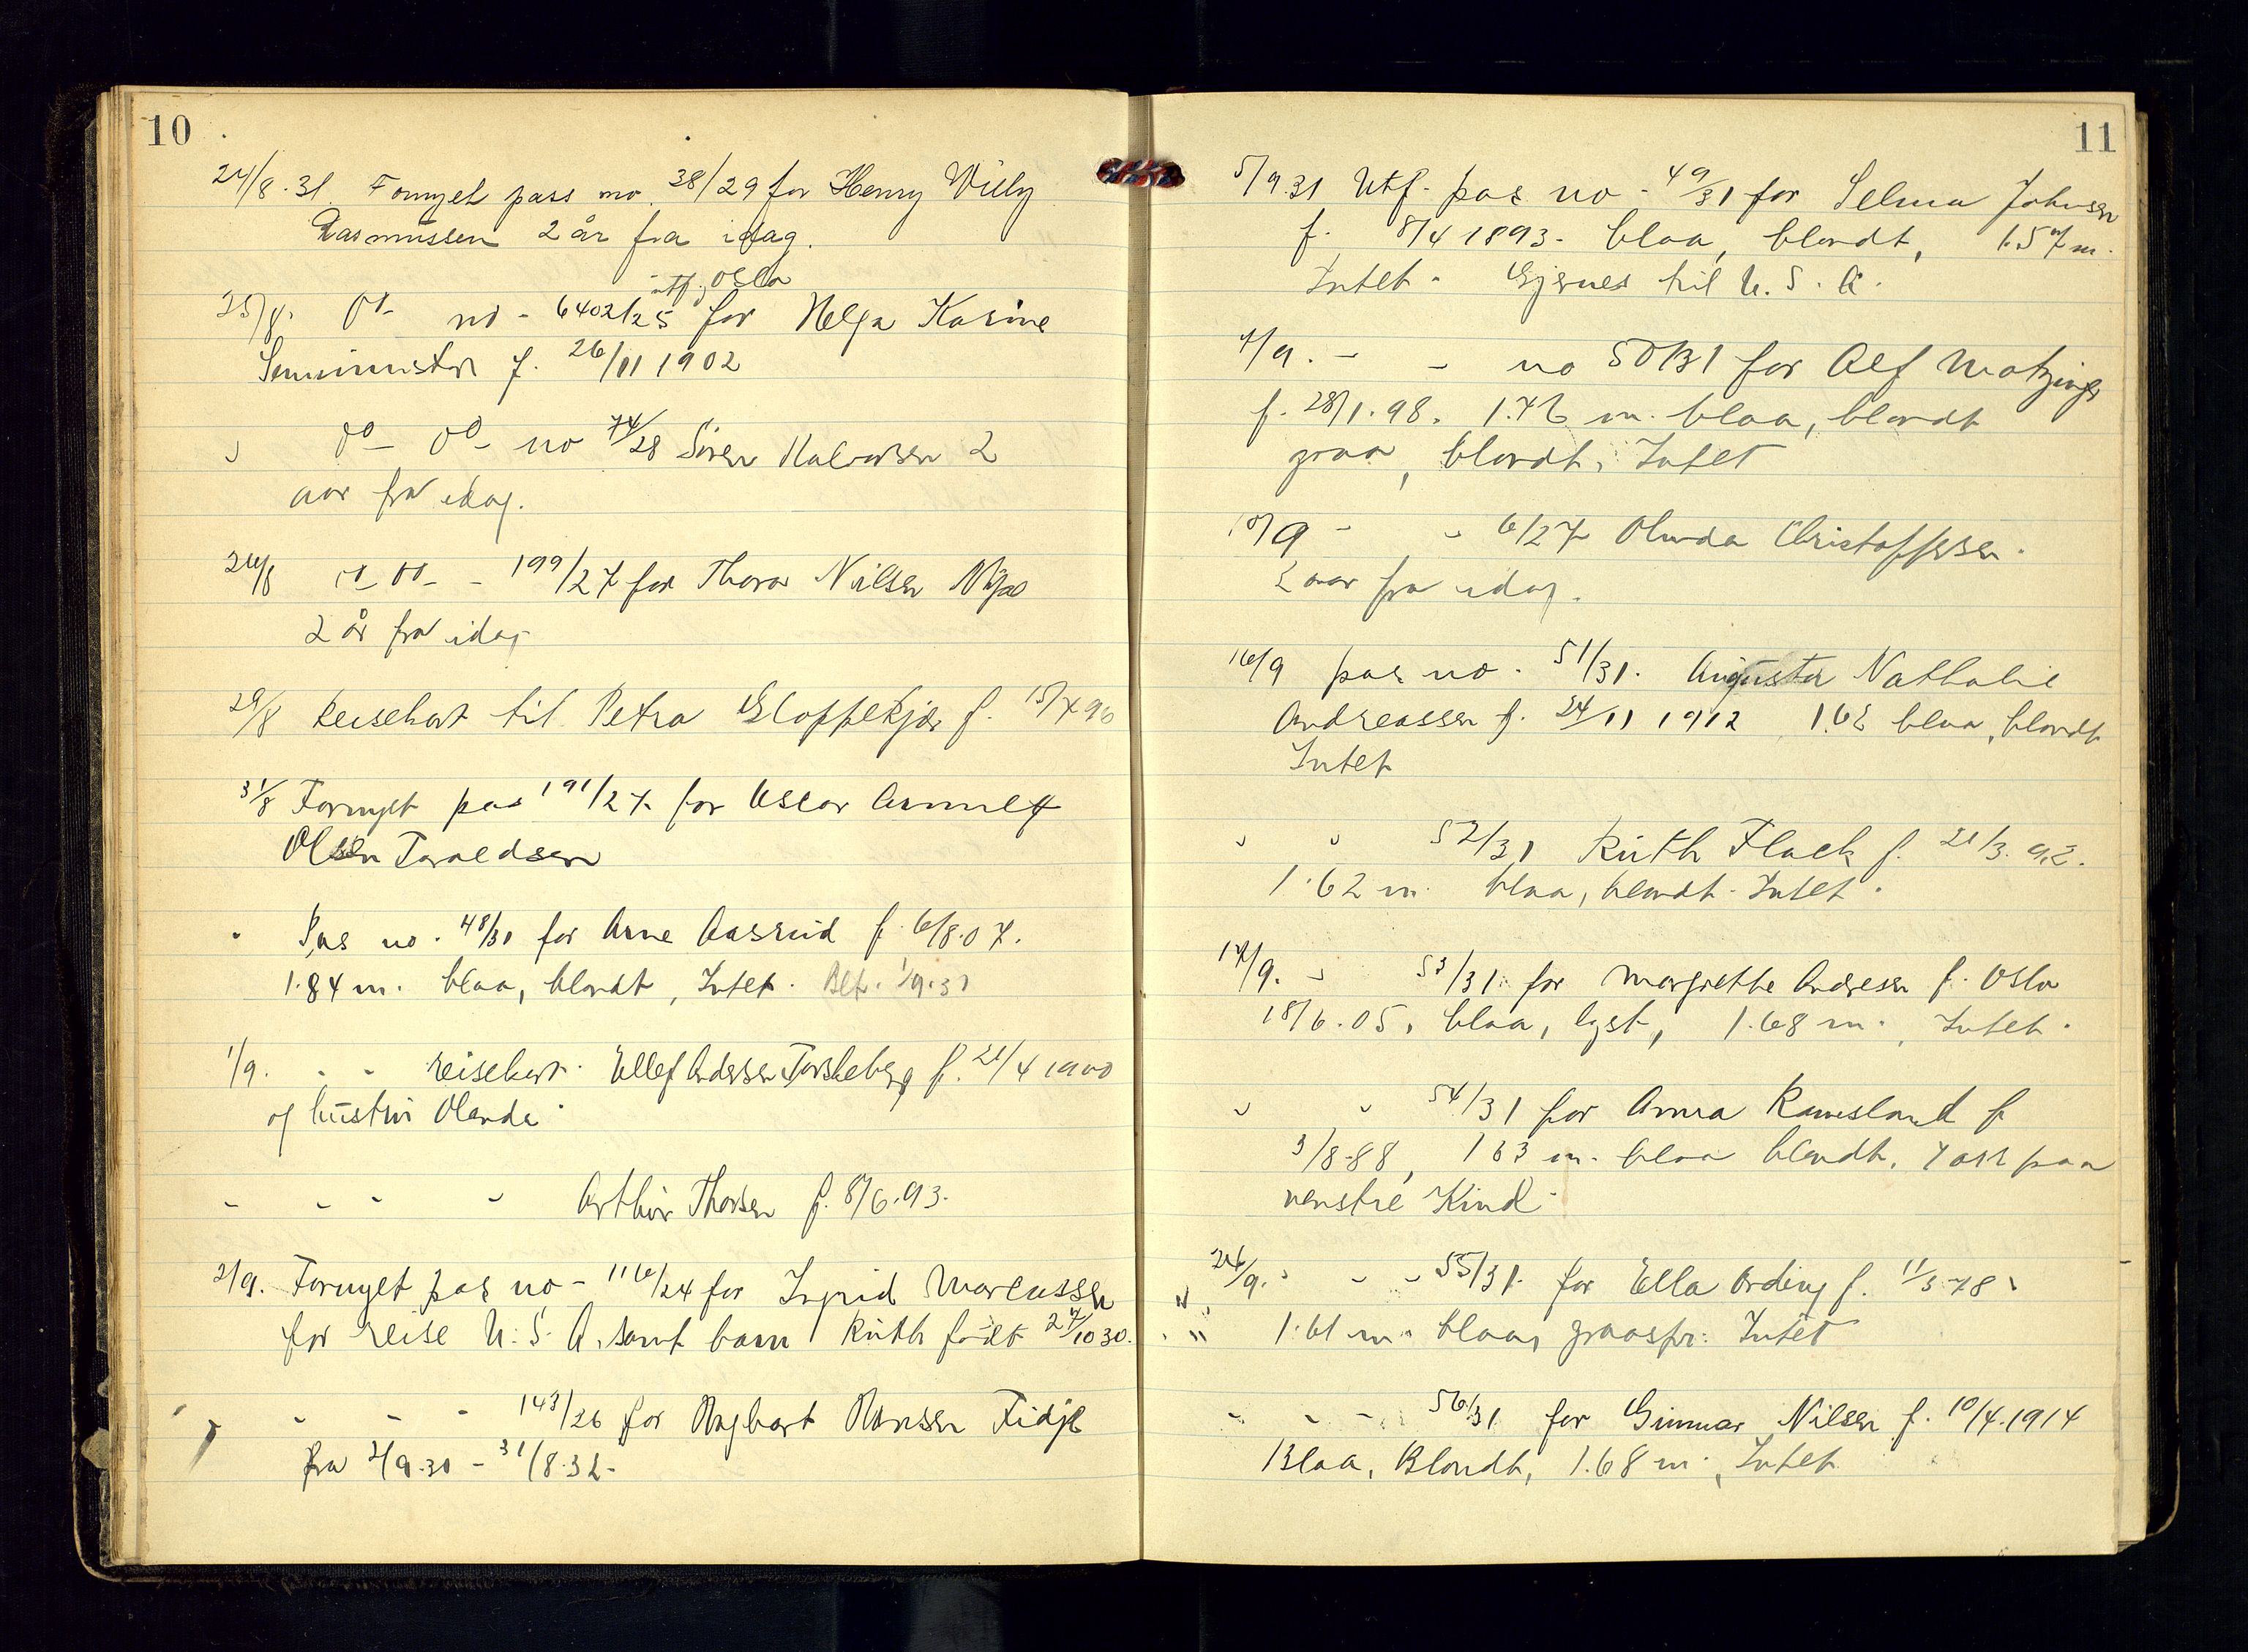 10
24/8.31. Fornyet pass no. 38/29 for Henry Willy
Rasmussen 2 år fra idag.
utf. Oslo
25/8. do- no - 6402/25 for Helga Karine
f. 26/11 1902
do- do- no 74/28 Søren Halvorsen 2
aar fra idag.
26/8 do- do- - 199/27 for Thora Nilsen
2 år fra idag
29/8 Reisekort til Petra Gloppekjær f. 15/7 96
31/8 Fornyet pas 191/27 for Oscar
Olsen Taraldsen
" Pas no. 48/31 for Arne Aasrud f. 6/8.07.
1.84 m. blaa, blondt, Intet. Blf. 1/9.31
1/9. - - reisekort. Ellef Andersen Torskeberg f. 21/4 1900
og hustru Olanda.
- - - - Arthur Thorsen f. 8/6.93.
2/9. Fornyet pas no - 116/24 for Ingrid Marcussen
for reise U.S.A. samt barn Ruth født 27/10 30.
- - - 143/26 for Hansen Fidje
fra 2/9.30 - 31/8.32.
11
5/9.31 Utf. pas no - 49/31 for Selma Johnsen
f. 8/4 1893. blaa, blondt, 1.57 m.
Intet - Gjernes til U.S.A.
7/9. - - no 50/31 for Alf
f. 28/1.98. 1.76 m. blaa, blondt
graa, blondt, Intet
10/9 - - 6/27 Olunda Christoffersen.
2 aar fra idag.
16/9 pas no. 51/31. Augusta Nathalie
Andreassen f. 24/11 1912 1.62 blaa, blondt
Intet
" " 52/31 Ruth Flack f. 21/3. 92.
1.62 m. blaa, blondt - Intet.
17/9. " 53/31 for Margrethe Andresen f. Oslo
18/6.05, blaa, lyst, 1.68 m., Intet.
" " 54/31 for Anna Ramsland f
3/8-88, 163 m. blaa blondt, paa
venstre Kind.
26/9. - - - 55/31 for Ella Ording f. 11/3-78
1.61 m. blaa, graaspr. Intet
- - - 56/31 for Gunnar Nilsen f. 10/4.1914
Blaa, Blondt, 1.68 m., Intet